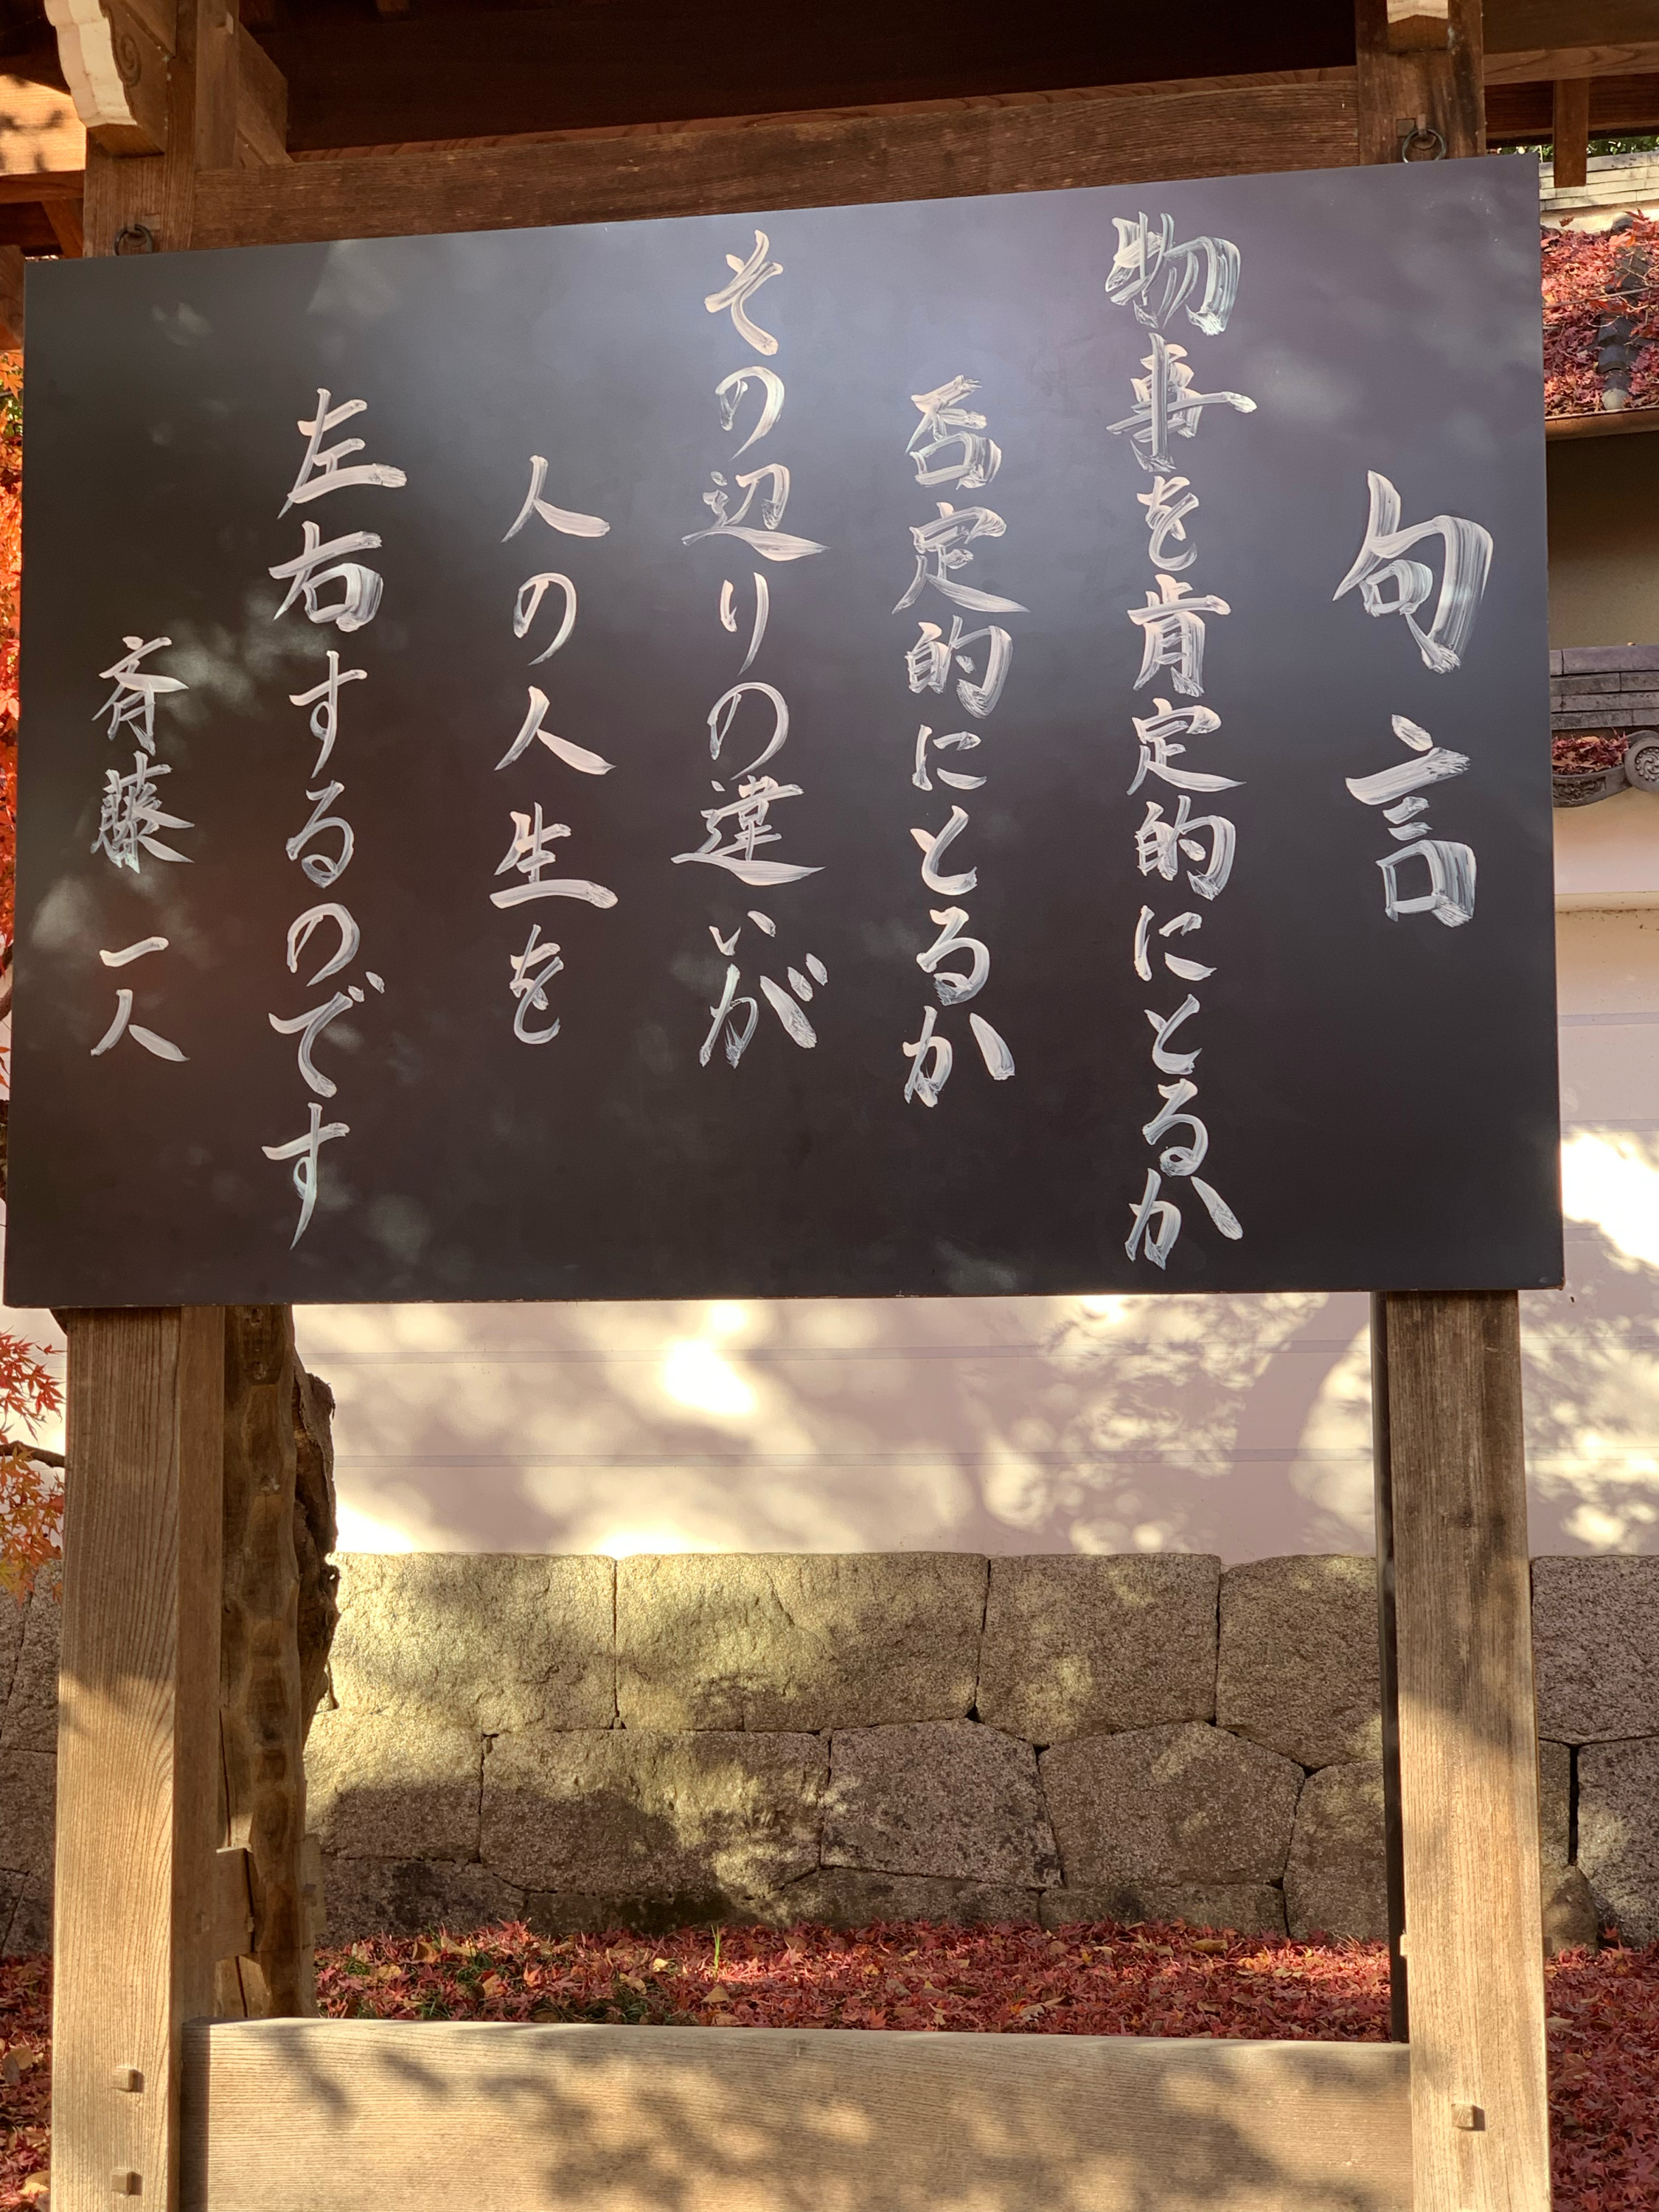 句言
物事を肯定的にとるか
否定的にとるか
その辺りの違いが
人の人生を
左右するのです
斉藤一人